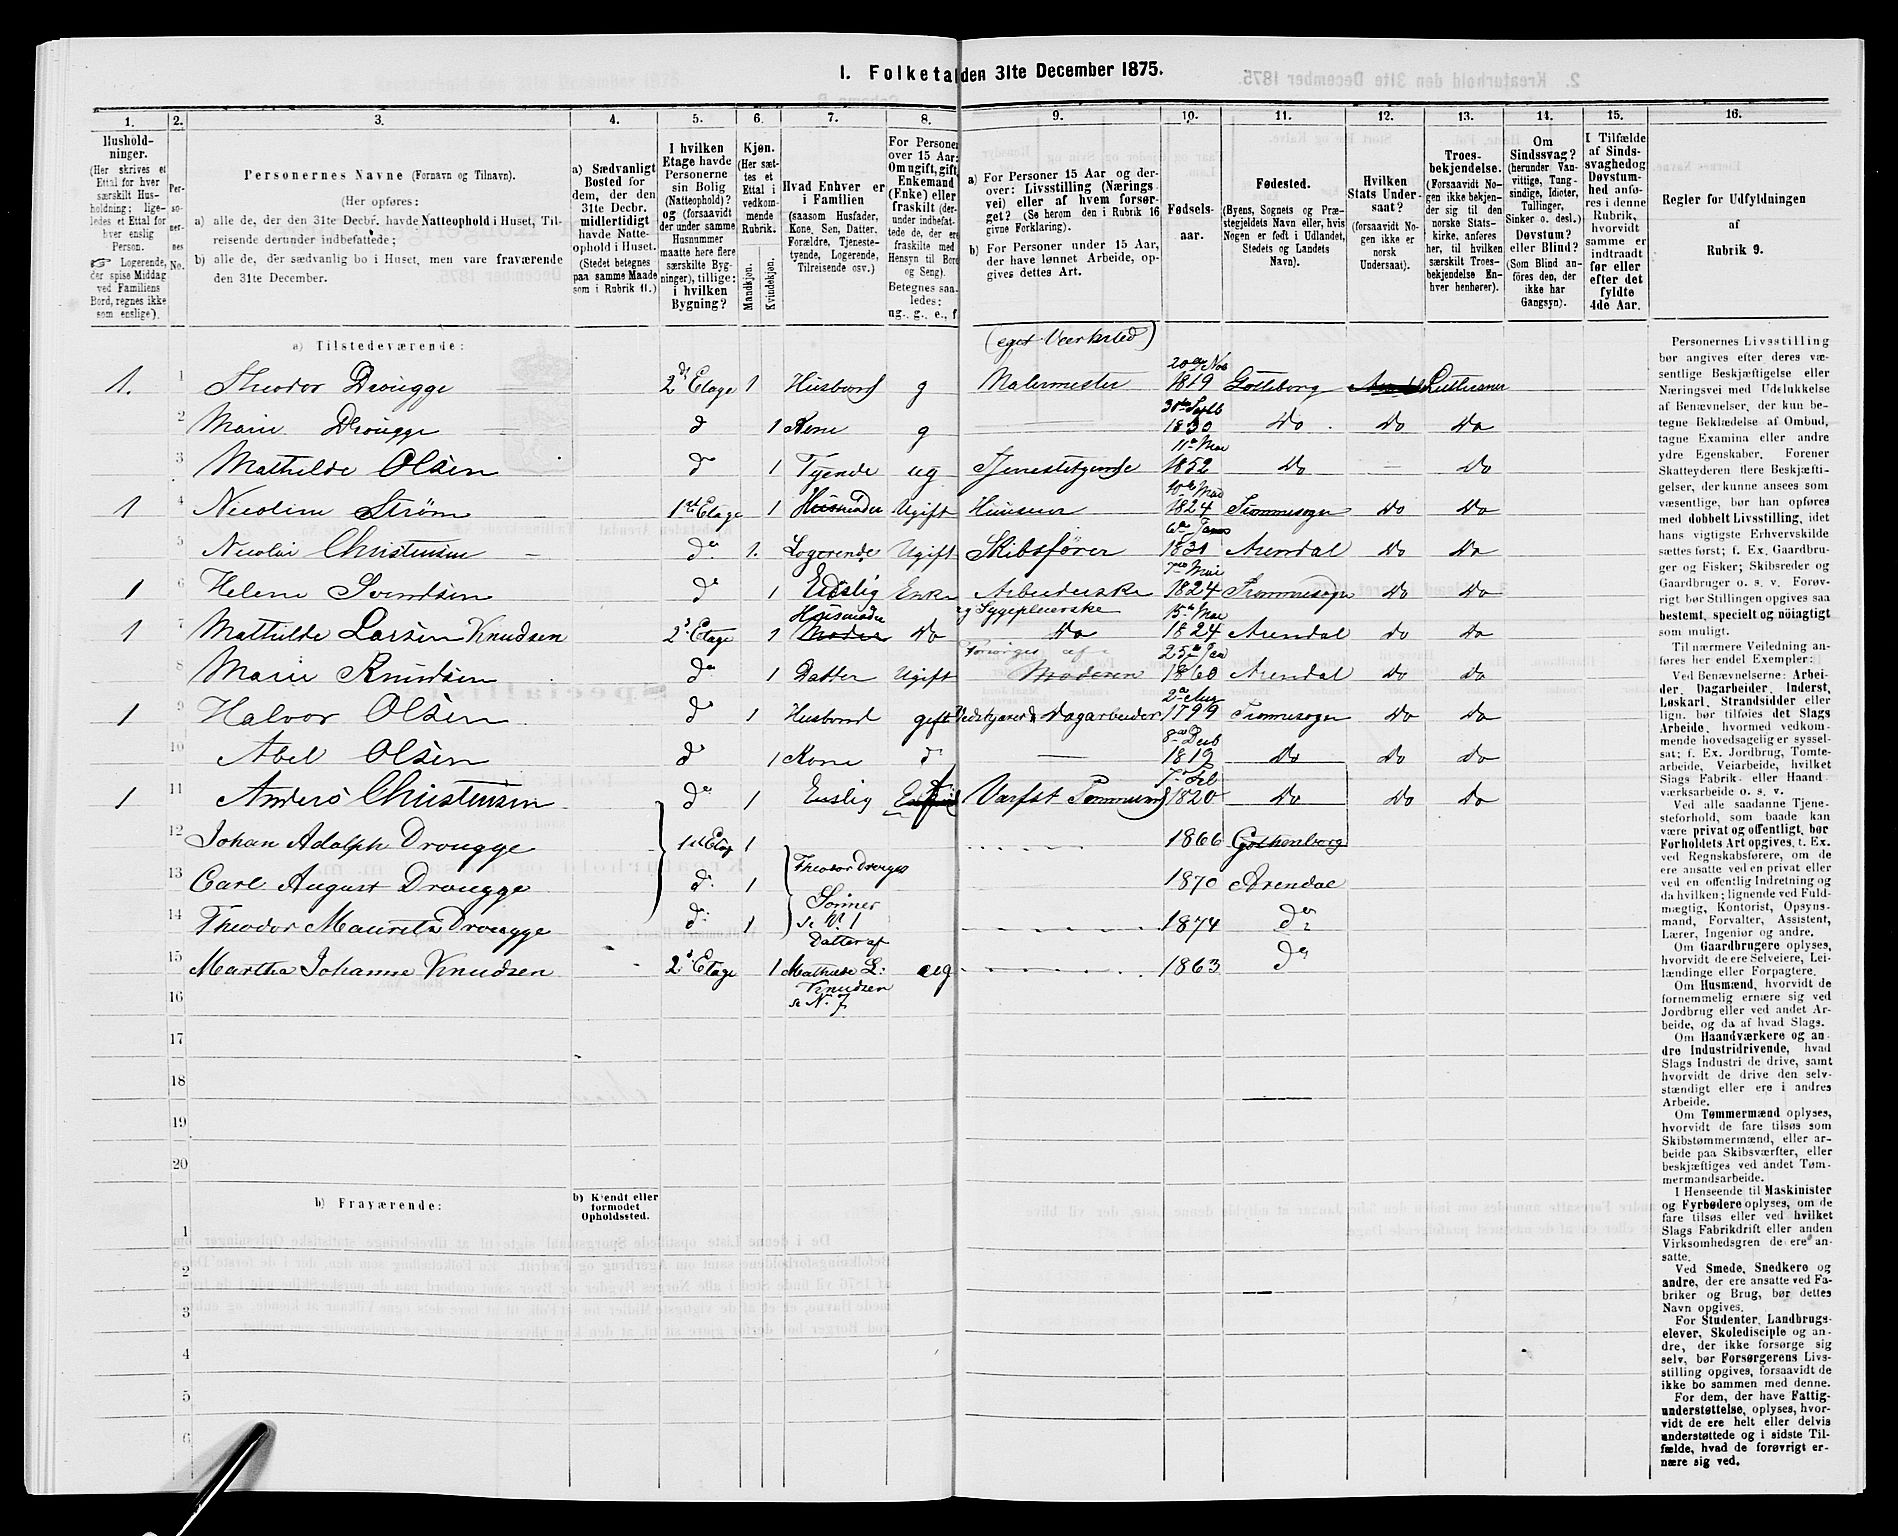 I. Folketal den 31te December 1875.
1.
2.
3.
4.
5.
6.
7.
8.
9.
10.
11.
12.
13.
14.
15.
16.
Hushold-
ninger.
(Her skrives et
Ettal for hver
særskilt Hus-
holdning; lige-
ledes et Ettal for
hver enslig
Person.
☞ Logerende,
der spise Middag
ved Familiens
Bord, regnes ikke
som enslige).
Per-
so-
ner-
nes
No.
Personernes Navne (Fornavn og Tilnavn).
(Her opføres:
a) alle de, der den 31te Decbr. havde Natteophold i Huset, Til-
reisende derunder indbefattede;
b) alle de, der sædvanlig bo i Huset, men vare fraværende
den 31te December.
a) Sædvanligt
Bosted for
dem, der den
31te Decbr.
midlertidigt
havde Natte-
ophold i Huset.
(Stedet betegnes
paa samme Maade
som i Rubrik 11.)
I hvilken
Etage havde
Personerne
sin Bolig
(Natteophold)?
og (forsaavidt
der under samme
Husnummer
maatte høre flere
særskilte Byg-
ninger), tillige:
i hvilken
Bygning?
Kjøn.
(Her sæt-
tes et
Ettal i
vedkom-
mende
Rubrik.
Mandkjøn.
Kvindekjøn.
Hvad Enhver er
i Familien
(saasom Husfader,
Kone, Søn, Datter,
Forældre, Tjeneste-
tyende, Logerende,
Tilreisende osv.)
For Personer
over 15 Aar:
Om ugift, gift,
Enkemand
(Enke) eller
fraskilt (der-
under indbefat-
tede de, der ere
fraskilte med
Hensyn til Bord
og Seng).
Betegnes saa-
ledes:
ug., g., e., f.
a) For Personer 15 Aar og der-
over: Livsstilling (Nærings-
vei) eller af hvem forsør-
get? (Se herom den i Rubrik 16
givne Forklaring).
b) For Personer under 15 Aar,
der have lønnet Arbeide, op-
gives dettes Art.
Fødsels-
aar.
Fødested.
(Byens, Sognets og Præ-
stegjeldets Navn eller, hvis
Nogen er født i Udlandet,
Stedets og Landets
Navn).
Hvilken
Stats Under-
saat?
(forsaavidt No-
gen ikke er
norsk
Undersaat).
Troes-
bekjendelse.
(Forsaavidt No-
gen ikke bekjen-
der sig til den
norske Stats-
kirke, anføres
her, til hvilken
særskilt Troes-
bekjendelse En-
hver henhører).
Om
Sindssvag?
(herunder Van-
vittige, Tung-
sindige, Idioter,
Tullinger,
Sinker o. desl.)
Døvstum?
eller Blind?
(Som Blind an-
føres den, der
ikke har
Gangsyn).
I Tilfælde
af Sinds-
svaghed og
Døvstum-
hed anfø-
res i denne
Rubrik,
hvorvidt
samme er
indtraadt
før eller
efter det
fyldte
4de Aar.
Regler for Udfyldningen
af
Rubrik 9.
a) Tilstedeværende:
(eget Værksted)
1. 1 Theodor Drougge 2d Etage 1 Husbond g Malermester 20de Nov 1819 Gøtteborg Lutheraner
2 Marie Drougge — d 1 Kone g — 30te Septb 1830 Do Do Do
3 Mathilde Olsen d 1 Tyende ug Tjenestepige 11te Mai 1852 Do — Do
1 4 Nicoline Strøm 1ste Etage 1 Husmoder Ugift 10de Mai 1824 Trommesogn Do Do
5 Nicolai Christensen — do 1. Logerende Ugift Skibsfører 6te Janr 1831 Arendal Do Do
1 6 Helene Svendsen do 1 Enslig Enke Arbeiderske og Sygepleierske 7de Mai 1824 Trommesogn Do Do
1 7 Mathilde Larsen Knudsen 2d Etage 1 Husmoder Do Do 15de Mai 1824 Arendal Do Do
8 Marie Knudsen do 1 Datter Ugift Forsørges af Moderen 25de Jan 1860 Arendal Do Do
1 9 Halvor Olsen do 1 Husbond gift Vedskjærer & Dagarbeider 2de Aug 1799 Tromøsogn Do Do
10 Abel Olsen do 1 Kone do — 8de Decb 1819 Do Do Do
1 11 Anders Christensen do 1 Enslig Varfst Tømmermd 7de Feb 1820 Do Do Do
12 Johan Adolph Drougge 1st Etag 1 1866 Gothenborg
13 Carl August Drougge do 1 Theodor Drouges 1870 Arendal
14 Theodor Mauritz Drougge do 1 Sønner se N. 1 1874 do
15 Martha Johanne Knudsen 2d Etage 1 Datter af Mathilde L: Knudsen se N. 7 ug 1863 do
16
17
18
19
20
b) Fraværende:
b) Kjendt eller
formodet
Opholdssted.
1
2
3
4
5
6
Personernes Livsstilling
bør angives efter deres væ-
sentlige Beskjæftigelse eller
Næringsvei med Udelukkelse
af Benævnelser, der kun be-
tegne Beklædelse af Ombud,
tagne Examina eller andre
ydre Egenskaber. Forener
Skatteyderen flere Beskjæfti-
gelser, der kunne ansees som
væsentlige, bør han opføres
med dobbelt Livsstilling, idet
hans vigtigste Erhvervskilde
sættes først; f. Ex. Gaardbru-
ger og Fisker; Skibsreder og
Gaardbruger o. s. v. Forøv-
rigt bør Stillingen opgives saa
bestemt, specielt og nøiagtigt
som muligt.
Til nærmere Veiledning an-
føres her endel Exempler:
Ved Benævnelserne: Arbei-
der, Dagarbeider, Inderst,
Løskarl, Strandsidder eller
lign. bør tilføies det Slags
Arbeide, hvormed vedkom-
mende hovedsagelig er syssel-
sat; f. Ex. Jordbrug, Tomte-
arbeide, Veiarbeide, hvilket
Slags Fabrik- eller Haand-
værksarbeide o. s. v.
Ved alle saadanne Tjene-
steforhold, som baade kan
være privat og offentligt, bør
Forholdets Art opgives, t. Ex.
ved Regnskabsførere, om de
ere ansatte ved en privat eller
ved en offentlig Indretning og
da hvilken; lignende ved Fuld-
mægtig, Kontorist, Opsyns-
mand, Forvalter, Assistent,
Lærer, Ingeniør og andre.
Om Gaardbrugere oplyses,
hvorvidt de ere Selveiere, Lei-
lændinge eller Forpagtere.
Om Husmænd, hvorvidt de
fornemmelig ernære sig ved
Jordbrug eller ved andet Ar-
beide, og da af hvad Slags.
Om Haandværkere og an-
dre Industridrivende, hvad
Slags Industri de drive, samt
hvorvidt de drive den selv-
stændigt eller ere i andres
Arbeide.
Om Tømmermænd oplyses,
hvorvidt de fare tilsøs som
Skibstømmermænd, eller ar-
beide paa Skibsværfter, eller
beskjæftiges ved andet Tøm-
mermandsarbeide.
I Henseende til Maskinister
og Fyrbødere oplyses, om de
fare tilsøs eller ved hvilket
Slags Fabrikdrift eller anden
Virksomhedsgren de ere an-
satte.
Ved Smede, Snedkere og
andre, der ere ansatte ved Fa-
briker og Brug, bør dettes
Navn opgives.
For Studenter, Landbrugs-
elever, Skoledisciple og an-
dre, der ikke forsørge sig
selv, bør Forsørgerens Livs-
stilling opgives, forsaavidt de
ikke bo sammen med denne.
For dem, der have Fattig-
understøttelse, oplyses, hvor-
vidt de ere helt eller delvis
understøttede og i sidste Til-
fælde, hvad de forøvrigt er-
nære sig ved.